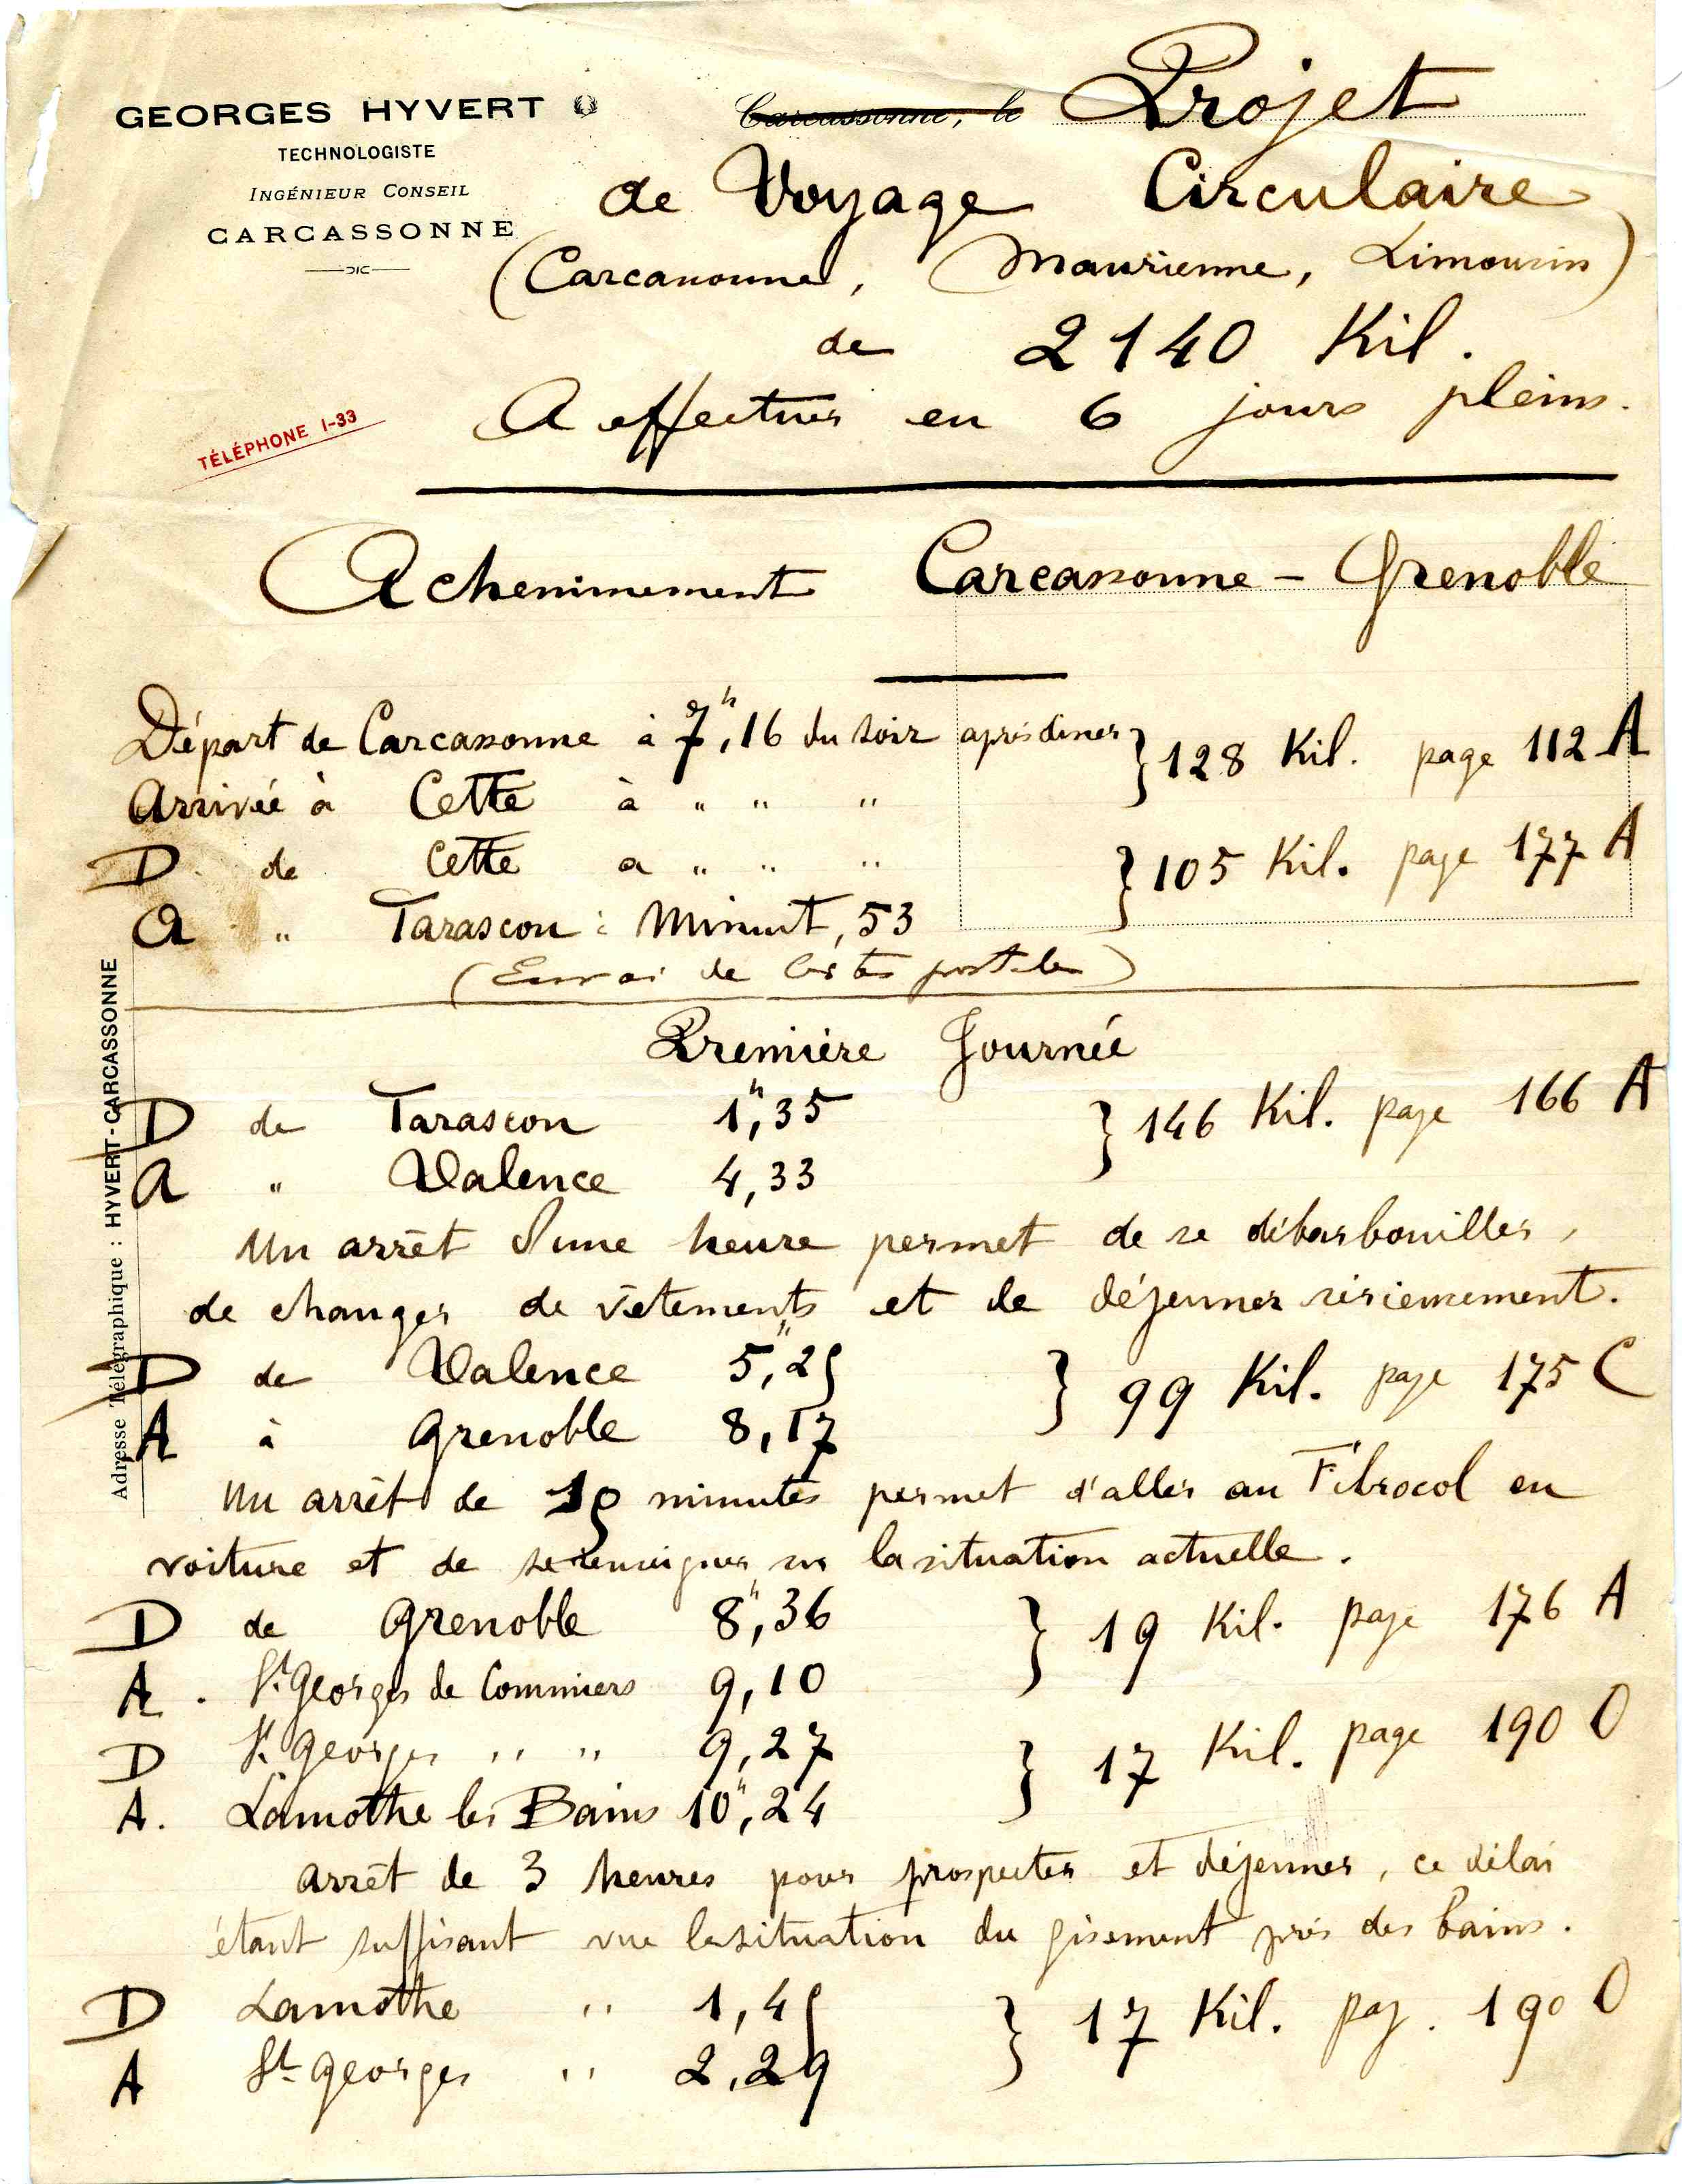 GEORGES HYVERT
TECHNOLOGISTE
INGÉNIEUR CONSEIL
CARCASSONNE
TÉLÉPHONE 1-33
Adresse Télégraphique : HYVERT-CARCASSONNE
Carcassonne, le Projet
de Voyage Circulaire
(Carcassonne, Maurienne, Limousin)
de 2140 Kil.
A effectuer en 6 jours pleins.
Acheminement Carcassonne - Grenoble
Départ de Carcassonne à 7h,16 du soir après diner } 128 Kil. page 112 A
Arrivée à Cette à " " "
D de Cette a " " " } 105 Kil. page 177 A
A " Tarascon : Minuit, 53
(Envoi de Cartes postales)
Première Journée
D de Tarascon 1h,35 } 146 Kil. page 166 A
A " Valence 4,33
Un arrêt d'une heure permet de se débarbouiller,
de changer de vêtements et de déjeuner sérieusement.
D de Valence 5h,25 } 99 Kil. page 175 C
A à Grenoble 8,17
Un arrêt de 19 minutes permet d'aller au Fibrocol en
voiture et de se renseigner sur la situation actuelle.
D de Grenoble 8h,36 } 19 Kil. page 176 A
A. St Georges de Commiers 9,10
D St Georges " " 9,27 } 17 Kil. page 190 O
A. Lamothe les Bains 10h,24
arrêt de 3 heures pour prospecter et déjeuner, ce délai
étant suffisant vue la situation du gisement près des bains.
D Lamothe " 1,45 } 17 Kil. pag. 190 O
A St Georges " 2,29